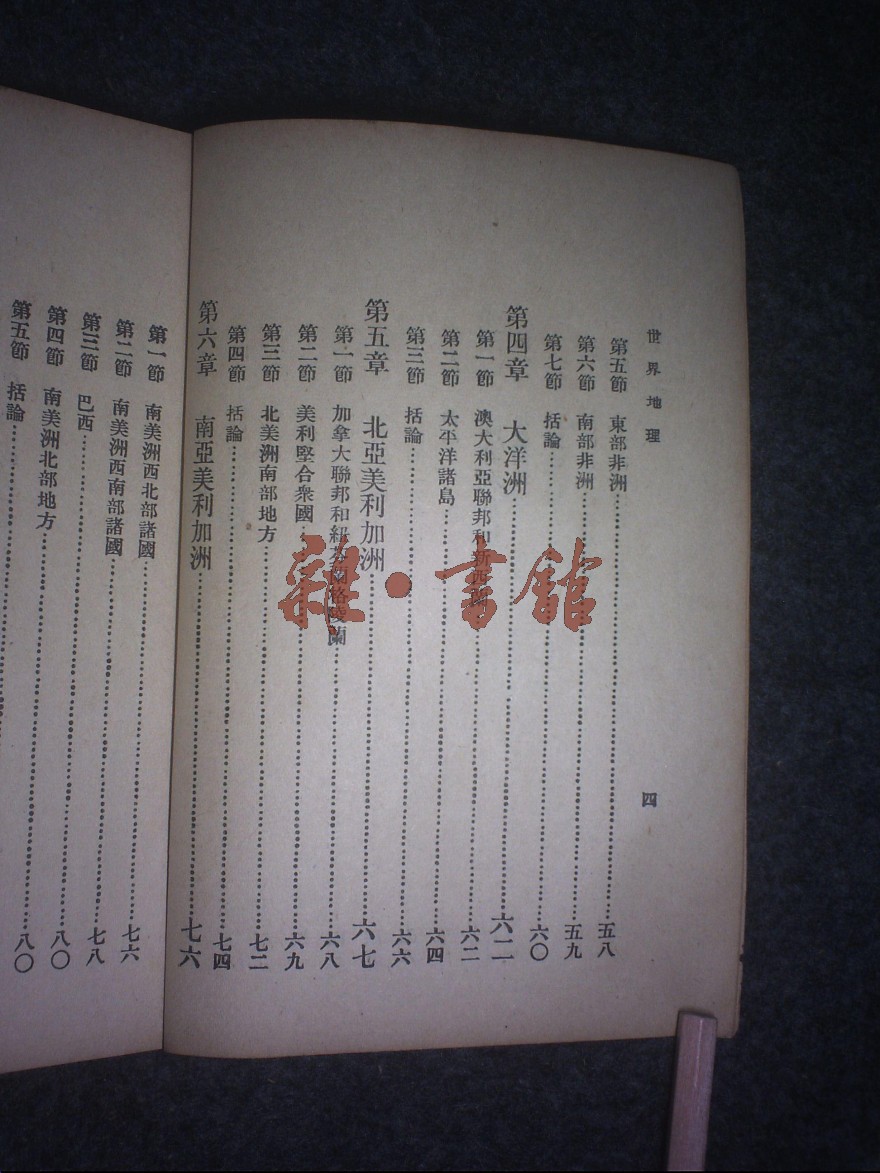 世界地理
四
第五節 東部非洲……五八
第六節 南部非洲……五九
第七節 括論……六〇
第四章 大洋洲……六二
第一節 澳大利亞聯邦和新西蘭……六二
第二節 太平洋諸島……六四
第三節 括論……六六
第五章 北亞美利加洲……六七
第一節 加拿大聯邦和紐芬蘭格陵蘭……六八
第二節 美利堅合衆國……六九
第三節 北美洲南部地方……七二
第四節 括論……七四
第六章 南亞美利加洲……七六
第一節 南美洲西北部諸國……七六
第二節 南美洲西南部諸國
第三節 巴西……七八
第四節 南美洲北部地方……八〇
第五節 括論……八〇
雜·書館